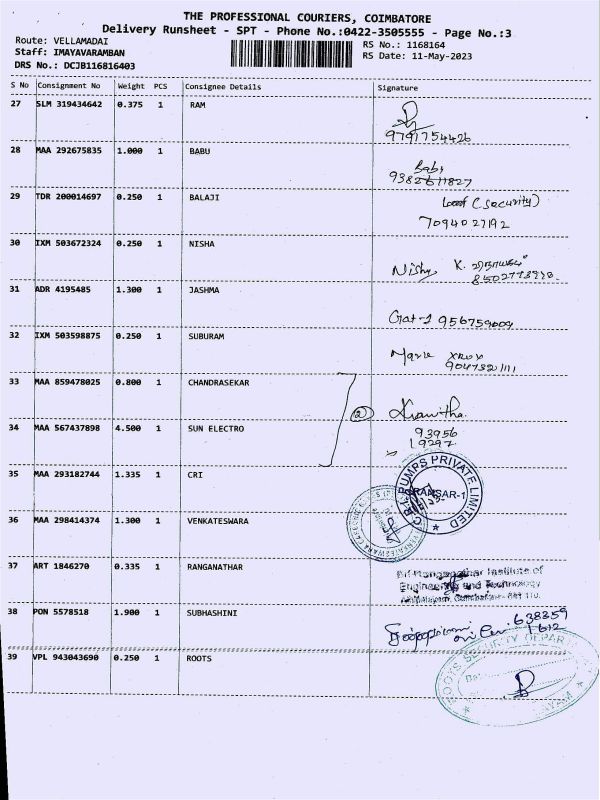 THE PROFESSIONAL COURIERS, COIMBATORE
Delivery Runsheet - SPT - Phone No.:0422-3505555 - Page No.:3
Route: VELLAMADAI
RS No.: 1168164
Staff: IMAYAVARAMBAN
RS Date: 11-May-2023
DRS No.: DCJB116816403
S No Consignment No Weight PCS Consignee Details Signature
27 SLM 319434642 0.375 1 RAM
9791754426
28 MAA 292675835 1.000 1 BABU
Babu
9382611827
29 TDR 200014697 0.250 1 BALAJI
(Security)
7094027192
30 IXM 503672324 0.250 1 NISHA
Nishy K.
31 ADR 4195485 1.300 1 JASHMA
Gat-1 956759009
32 IXM 503598875 0.250 1 SUBURAM
Marie
9047321111
33 MAA 859478025 0.800 1 CHANDRASEKAR
2
34 MAA 567437898 4.500 1 SUN ELECTRO
93956
19297
35 MAA 293182744 1.335 1 CRI
C.R.I. PUMPS PRIVATE LIMITED
36 MAA 298414374 1.300 1 VENKATESWARA
37 ART 1846270 0.335 1 RANGANATHAR
Sri Ranganathar Institute of
Engineering and Technology
38 PON 5578518 1.900 1 SUBHASHINI
638359
1612
39 VPL 943043690 0.250 1 ROOTS
ROOTS SECURITY DEPAR